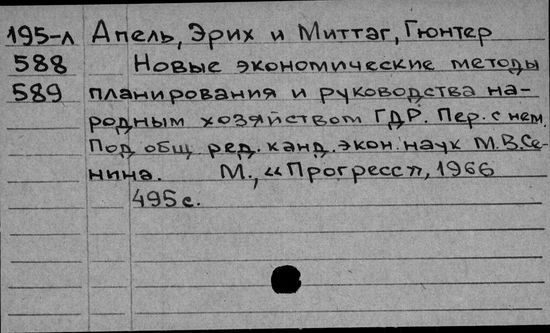 195-л Апель, Эрих и Миттаг, Гюнтер
588 Новые экономические методы
589 планирования и руководства на-
родным хозяйством ГДР. Пер. с нем.
Под общ. ред. канд. экон. наук М.В.Се-
нина. М., «Прогресс», 1966
495 с.